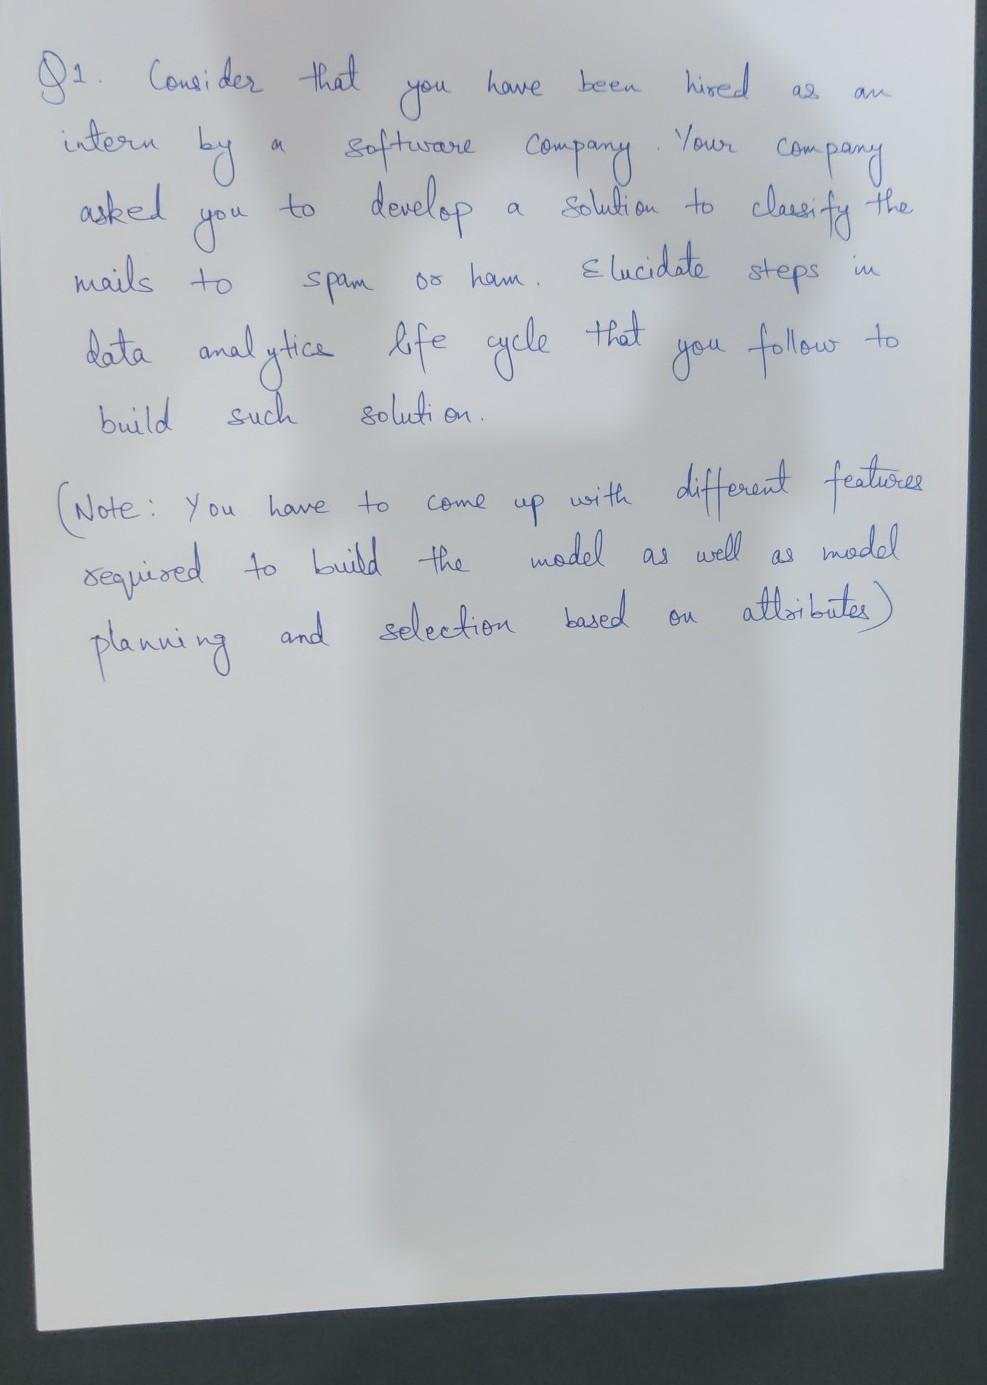 Q1. Consider that you have been hired as an
intern by a software company. Your company
asked you to develop a solution to classify the
mails to spam or ham. Elucidate steps in
data analytics life cycle that you follow to
build such solution.
(Note: You have to come up with different features
required to build the model as well as model
planning and selection based on attributes)